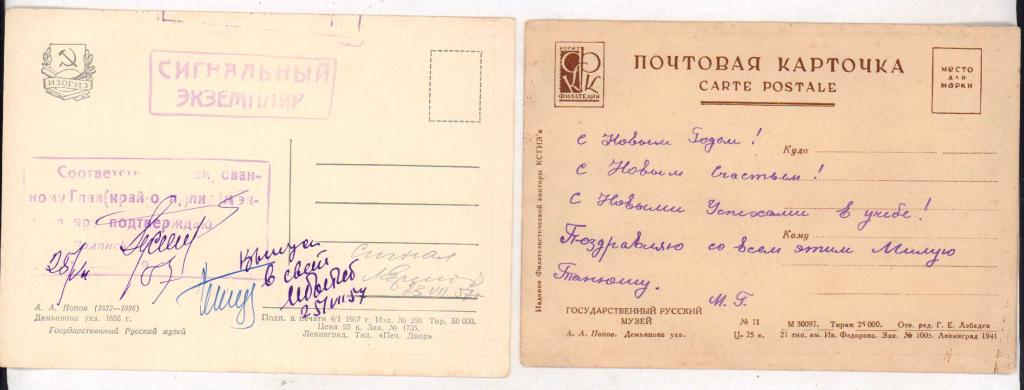 ИЗОГИЗ
СИГНАЛЬНЫЙ
ЭКЗЕМПЛЯР
Соответств
ному Глав(край-о
подтверждаю
Выпуск
в свет
25/VII 57
Сигнал
23 VII 57г
А. А. Попов (1832—1896)
Демьянова уха. 1856 г.
Государственный Русский музей
Подп. к печати 4/I 1957 г. Изд. № 250. Тир. 50 000.
Цена 25 к. Зак. № 1735.
Ленинград. Тип. «Печ. Двор»
КОГИЗ
ФК
ФИЛАТЕЛИЯ
ПОЧТОВАЯ КАРТОЧКА
CARTE POSTALE
МЕСТО
ДЛЯ
МАРКИ
Издание Филателистической конторы КОГИЗ'а
С Новым Годом!
Куда
С Новым Счастьем!
С Новыми Успехами в учебе!
Кому
Поздравляю со всем этим Милую
Танюшу.
М. Г.
ГОСУДАРСТВЕННЫЙ РУССКИЙ
МУЗЕЙ
А. А. Попов. Демьянова уха.
№ 11
Ц. 25 к.
М 30097. Тираж 25 000. Отв. ред. Г. Е. Лебедев
21 тип. им. Ив. Федорова. Зак. № 1005. Ленинград 1941